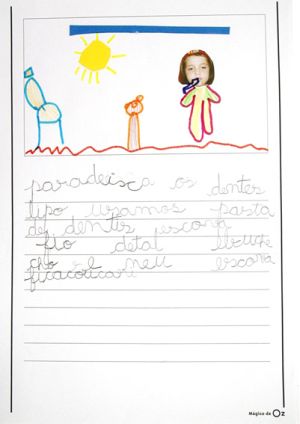 paradeisca os dentes
lipo usamos pasta
de dentes escova
fio detal
cho e meu escova
Mágico de Oz